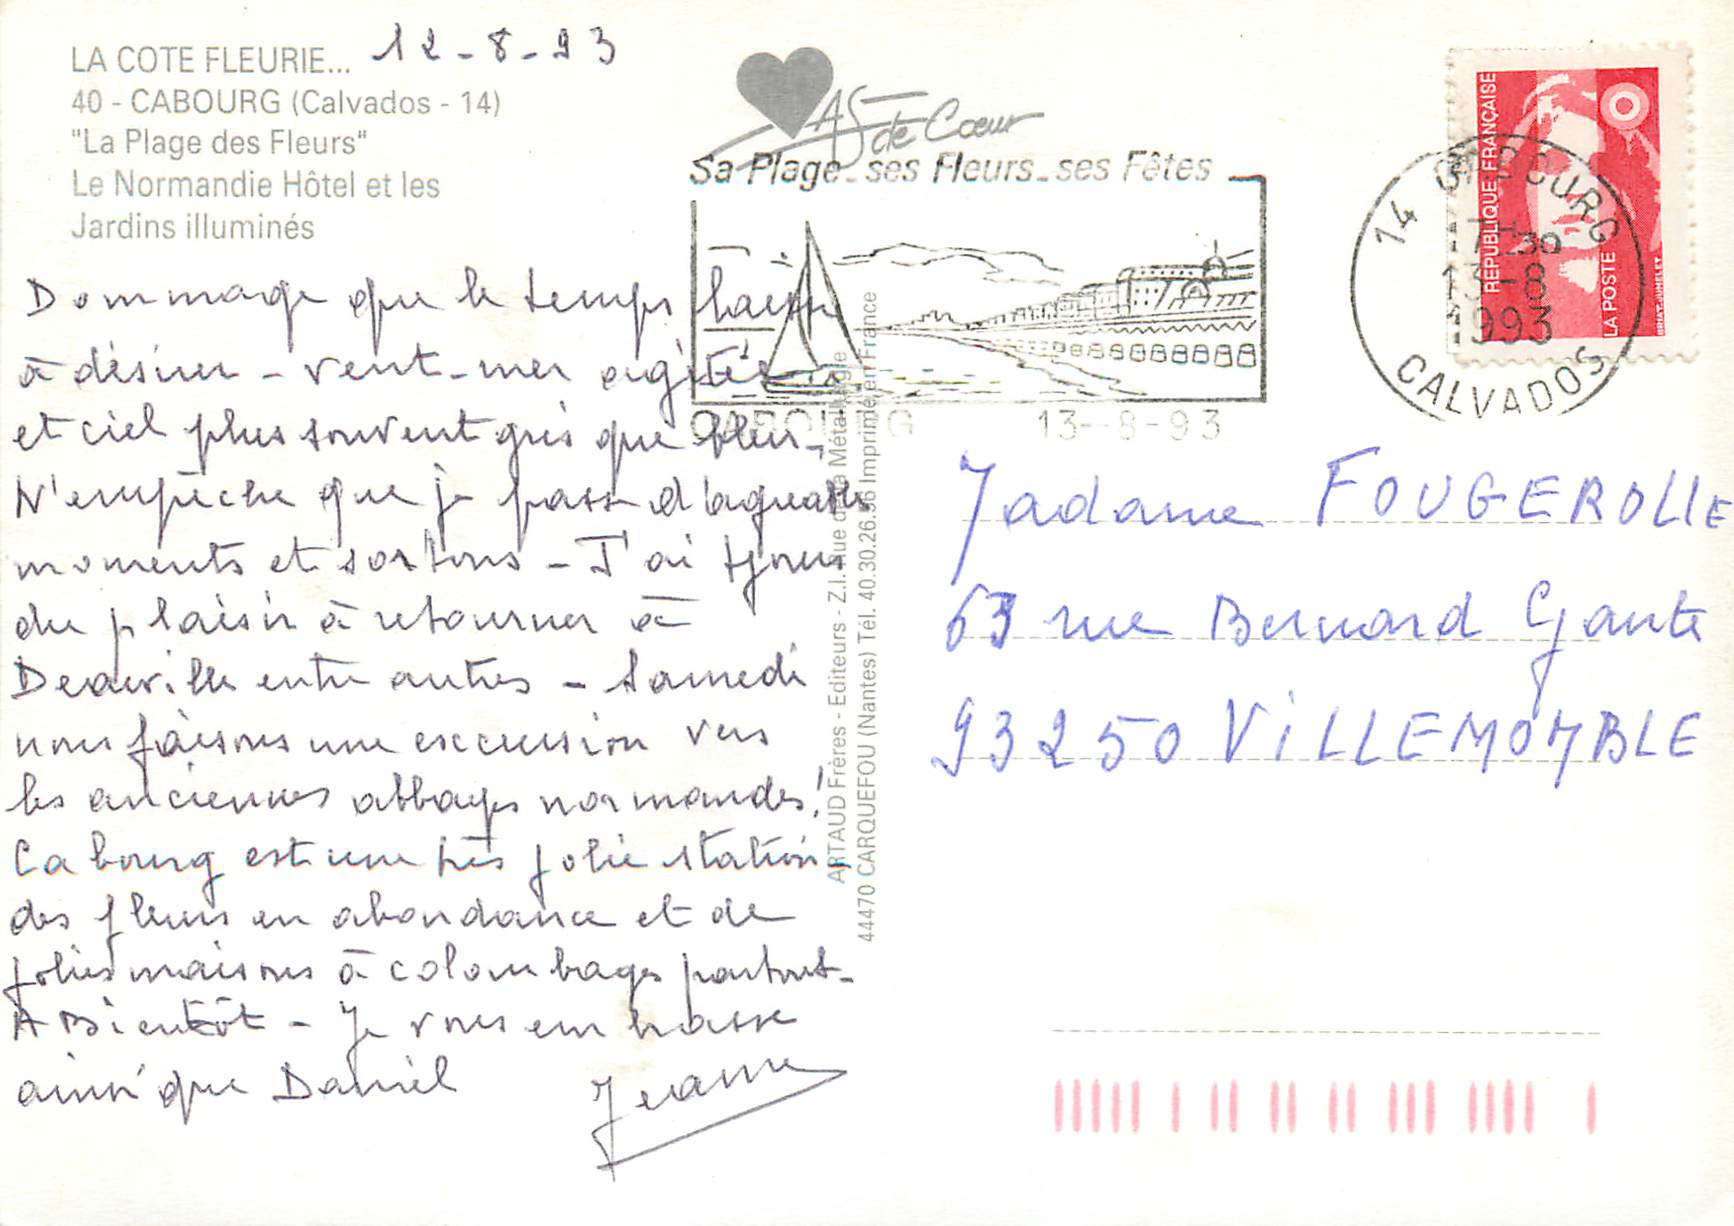 LA COTE FLEURIE... 12-8-93
40 - CABOURG (Calvados - 14)
"La Plage des Fleurs"
Le Normandie Hôtel et les
Jardins illuminés
Dommage que le temps laisse
à désirer - vent - mer agitée
et ciel plus souvent gris que bleu -
N'empêche que je passe d'agréables
moments et sortons - J'ai tjours
du plaisir à retourner à
Deauville entre autres - Samedi
nous faisons une excursion vers
les anciennes abbayes normandes!
Cabourg est une très jolie station -
des fleurs en abondance et de
jolies maisons à colombages partout -
A Bientôt - Je vous embrasse
ainsi que Daniel
Jeanne
AS de Cœur
Sa Plage_ses Fleurs_ses Fêtes
CABOURG 13-8-93
14 CABOURG
17H30
13-8
1993
CALVADOS
RÉPUBLIQUE FRANÇAISE
LA POSTE
BRIAT-JUMELET
ARTAUD Frères - Editeurs - Z.I. Rue de la Métallurgie
44470 CARQUEFOU (Nantes) Tél. 40.30.26.56 Imprimé en France
Madame FOUGEROLLE
63 rue Bernard Gante
93250 ViLLEMOMBLE